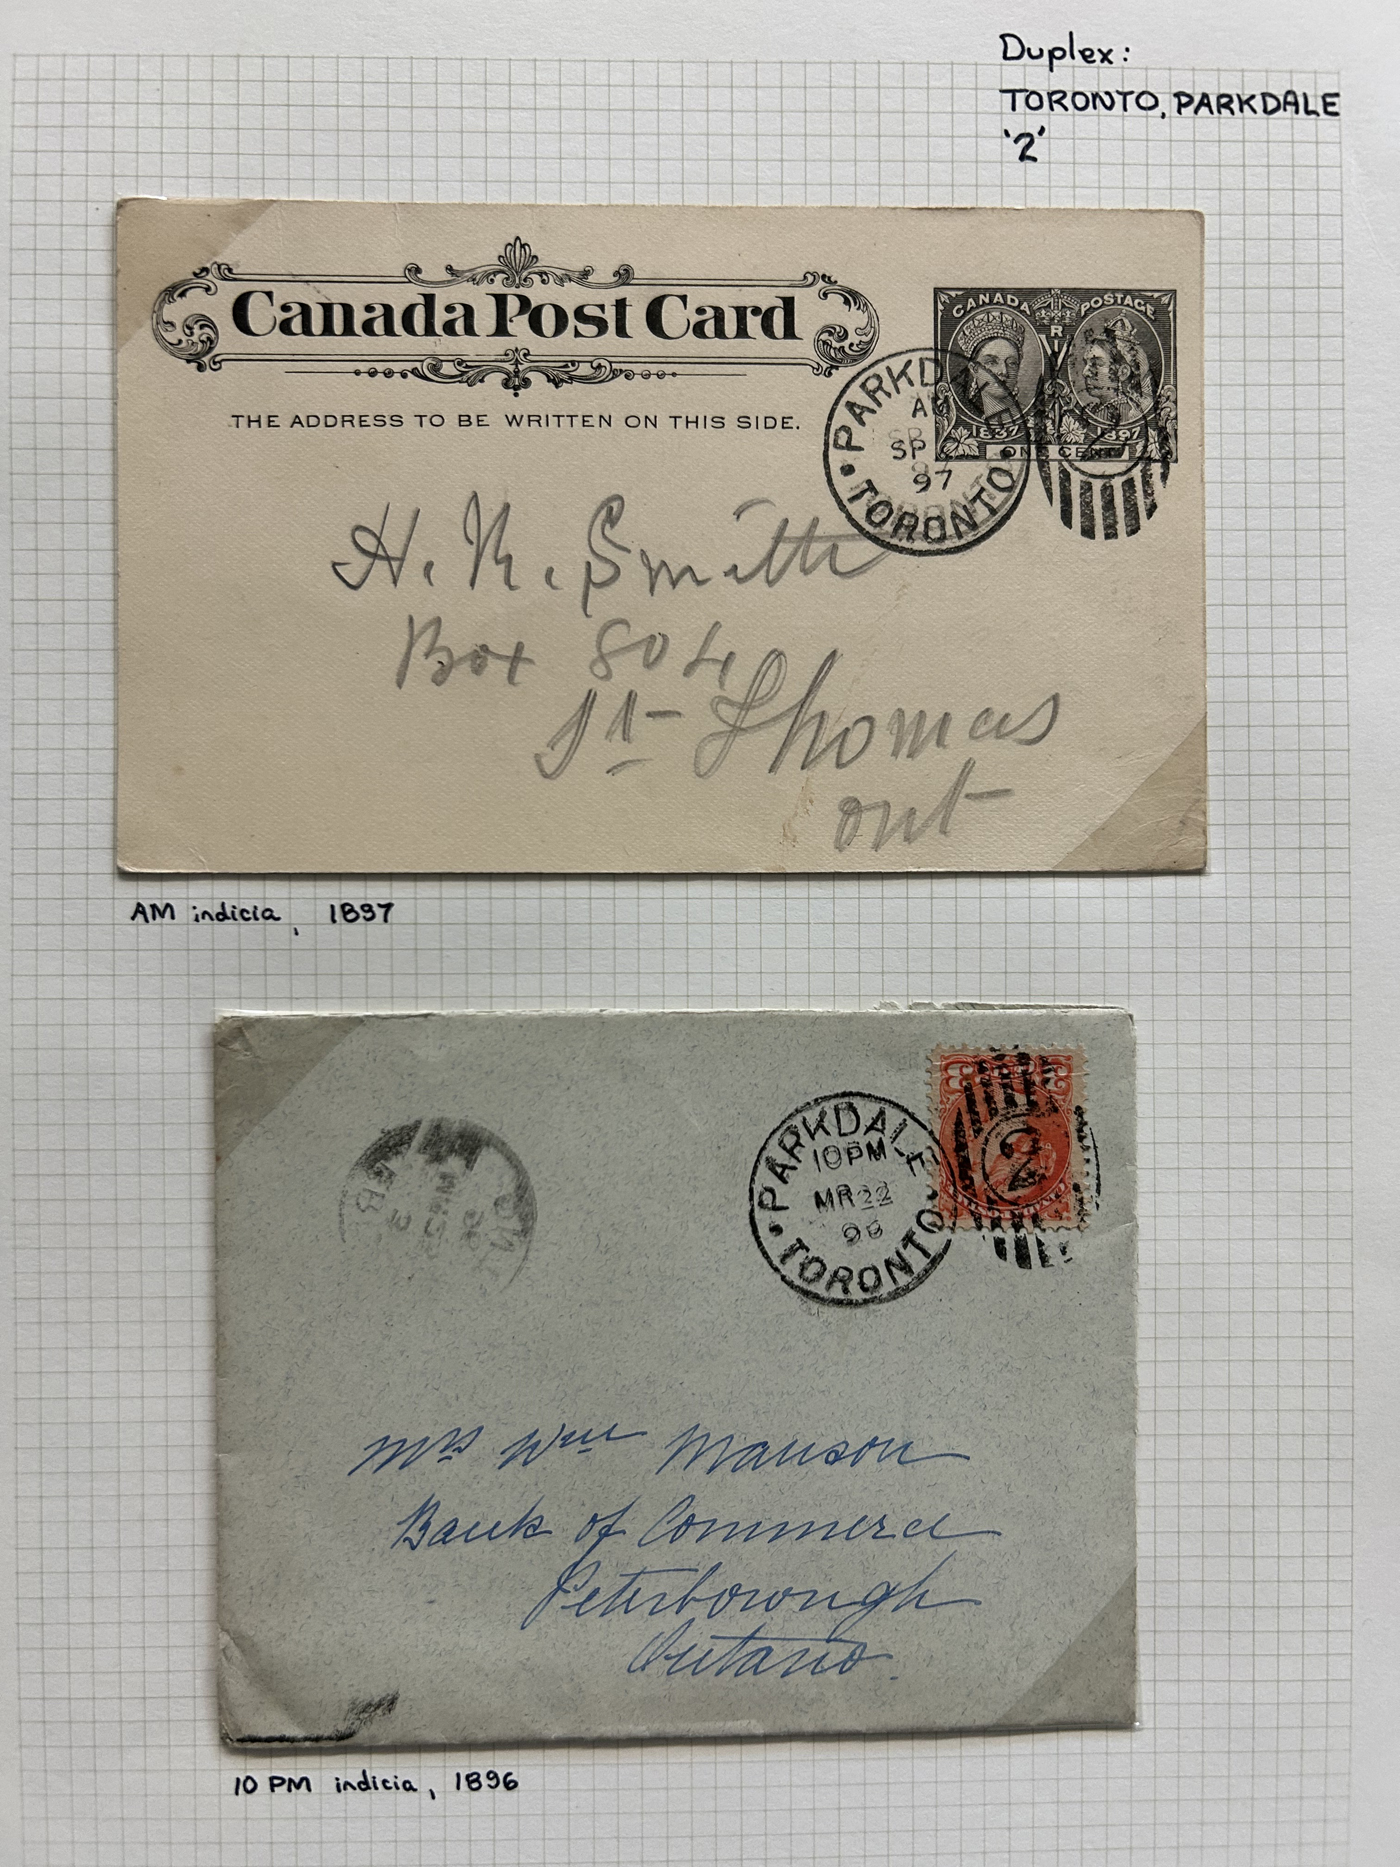 Duplex:
TORONTO, PARKDALE
'2'
Canada Post Card
THE ADDRESS TO BE WRITTEN ON THIS SIDE.
CANADA POSTAGE
V R I
1837 1897
ONE CENT
PARKDALE
AM
SP
97
TORONTO
2
H. K. Smith
Box 804
St Thomas
Ont
AM indicia, 1897
PARKDALE
10 PM
MR 22
96
TORONTO
2
Mrs Wm Manson
Bank of Commerce
Peterborough
Ontario.
10 PM indicia, 1896